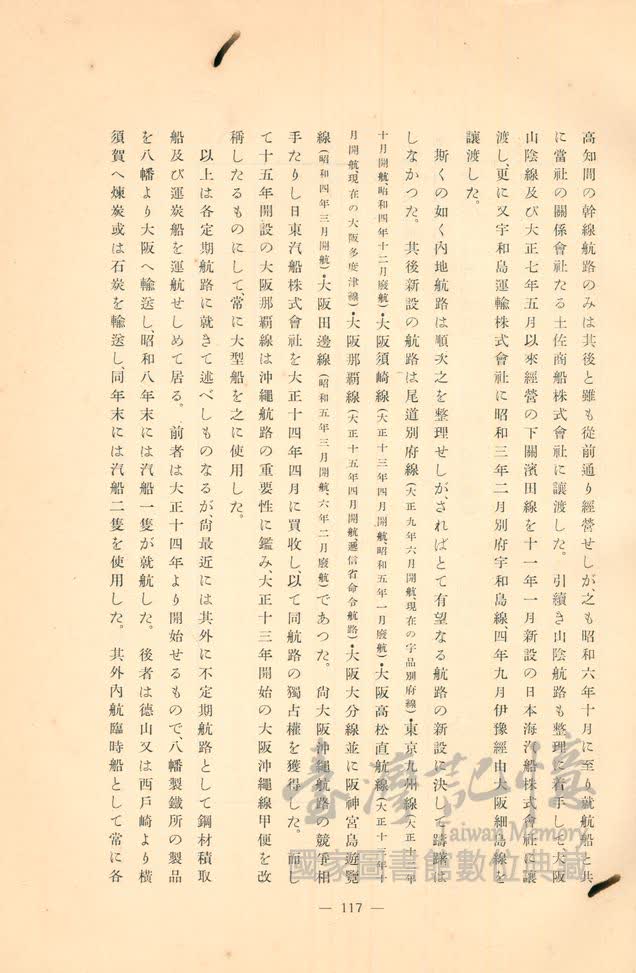 高知間の幹線航路のみは其後と雖も從前通り經營せしが、之も昭和六年十月に至り就航船と共
に當社の關係會社たる土佐商船株式會社に讓渡した。引續き山陰航路も整理に着手して大阪
山陰線及び大正七年五月以來經營の下關濱田線を十一年一月新設の日本海汽船株式會社に讓
渡し、更に又宇和島運輸株式會社に昭和三年二月別府宇和島線、四年九月伊豫經由大阪細島線を
讓渡した。
斯くの如く內地航路は順次之を整理せしが、さればとて有望なる航路の新設に決して躊躇は
しなかつた。其後新設の航路は尾道別府線(大正九年六月開航現在の宇品別府線)・東京九州線(大正十一年
十月開航昭和四年十二月廢航)・大阪須崎線(大正十三年四月開航昭和五年一月廢航)・大阪高松直航線(大正十三年十
月開航、現在の大阪多度津線)・大阪那覇線(大正十五年四月開航、遞信省命令航路)・大阪大分線並に阪神宮島遊覽
線(昭和四年三月開航)・大阪田邊線(昭和五年三月開航、六年二月廢航)であつた。尙大阪沖繩航路の競爭相
手たりし日東汽船株式會社を大正十四年四月に買收し、以て同航路の獨占權を獲得した。而し
て十五年開設の大阪那覇線は沖繩航路の重要性に鑑み、大正十三年開始の大阪沖繩線甲便を改
稱したるものにして、常に大型船を之に使用した。
以上は各定期航路に就きて述べしものなるが、尙最近には其外に不定期航路として鋼材積取
船及び運炭船を運航せしめて居る。前者は大正十四年より開始せるもので八幡製鐵所の製品
を八幡より大阪へ輸送し、昭和八年末には汽船一隻が就航した。後者は德山又は西戶崎より橫
須賀へ煉炭或は石炭を輸送し、同年末には汽船二隻を使用した。其外內航臨時船として常に各
— 117 —
臺灣記憶
Taiwan Memory
國家圖書館數位典藏